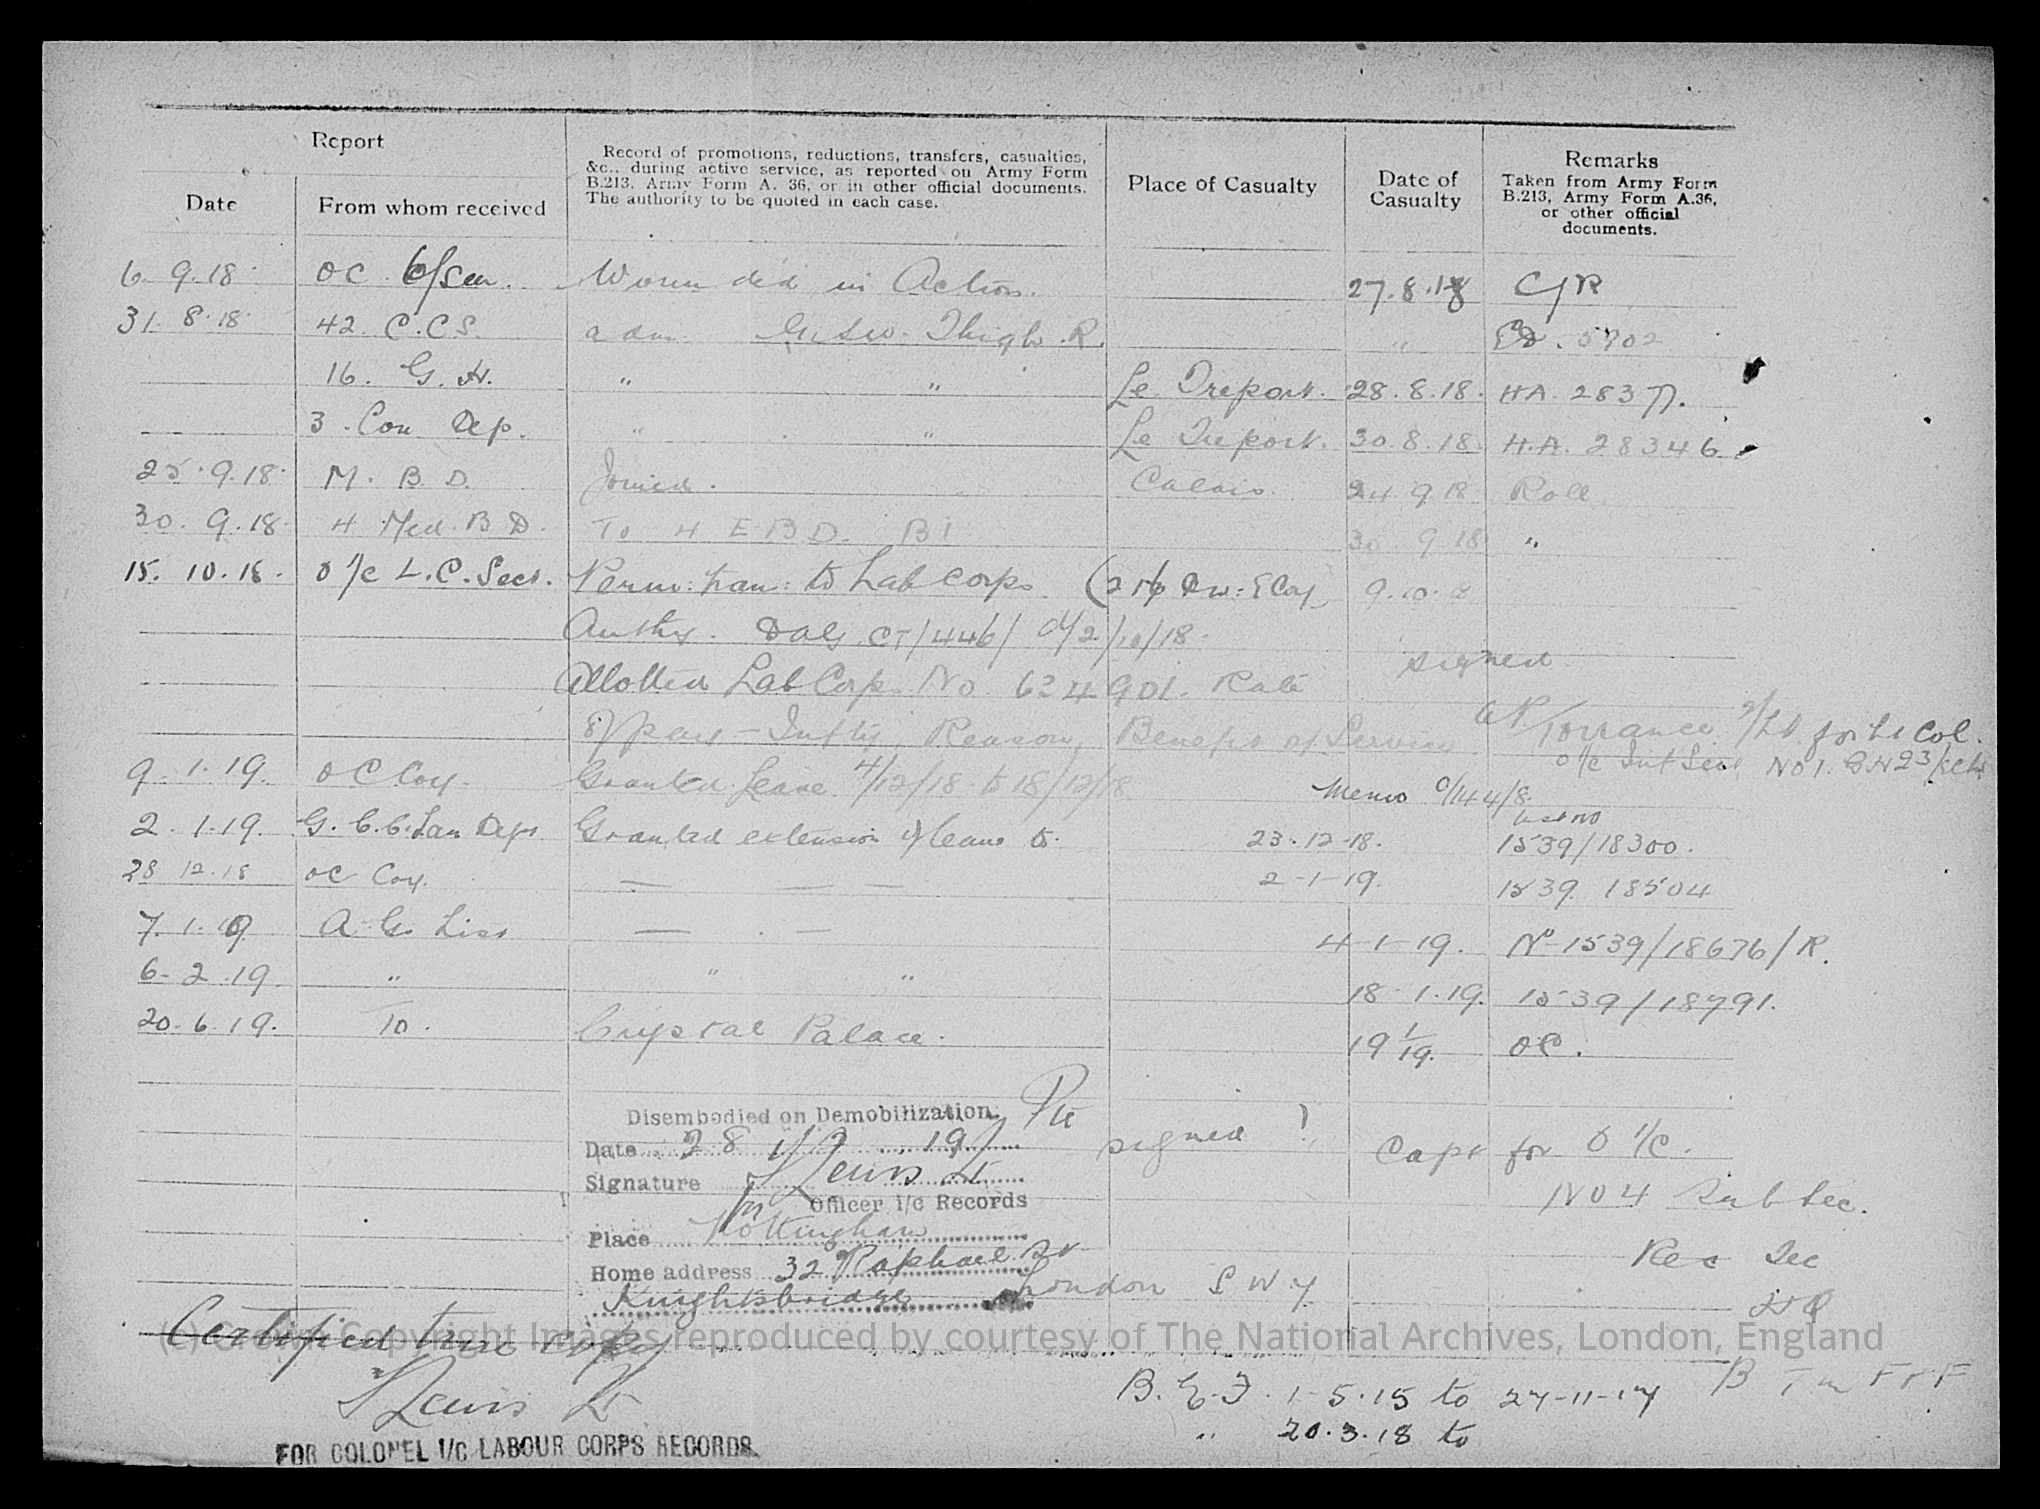 Report
Record of promotions, reductions, transfers, casualties,
&c., during active service, as reported on Army Form
B.213, Army Form A. 36, or in other official documents.
The authority to be quoted in each case.
Place of Casualty
Date of
Casualty
Remarks
Taken from Army Form
B.213, Army Form A.36,
or other official
documents.
Date
From whom received
6. 9. 18 OC Wounded in Action. 27.8.18 C/R
31. 8. 18 42. C.C.S. adm. G.S.W. Thigh. R. " 5902
16. G. H. " " Le Treport. 28.8.18. HA. 28377.
3. Con Dep. " " Le Treport. 30.8.18. H.A. 28346.
25. 9. 18. M. B. D. Joined. Calais 24 9 18 Roll
30. 9. 18. 4 Med. B D. To 4 E B D. B1 30 9 18 "
15. 10. 18. O i/c L.C. Sect. Perm: tran: to Lab Corps 9.10.18
Authy. DAG CT/446/ d/2/10/18.
signed
Allotted Lab Corps No 624901. Rate
of pay - Infty. Reason, Benefit of Service
Torrance 2/Lt for Lt Col.
9. 1. 19. OC Coy. Granted Leave 4/12/18 to 18/12/18 Memo
2. 1. 19. Granted extension of leave to. 23.12.18. List No 1539/18300.
28 12. 18 OC Coy. — — — 2-1-19. 1539 18504
7. 1. 19 A.G. List — . — 4-1-19. No 1539/18676/R.
6-2.19. " " " 18-1.19. 1539/18791.
20.6.19. To. Crystal Palace. 19 1/19. OC.
Disembodied on Demobilization. Pte
Date 28 19 signed Capt for O i/c.
Signature Lewis Lt
No 4 Sub Sec.
for Officer i/c Records
Place Nottingham
Rec Sec
Home address 32 Raphael St
Knightsbridge London S W 7
Certified true copy
(c) Crown Copyright Images reproduced by courtesy of The National Archives, London, England
Lewis Lt
B.E.F. 1-5.15 to 27-11-17
" 20.3.18 to
FOR COLONEL I/C LABOUR CORPS RECORDS.